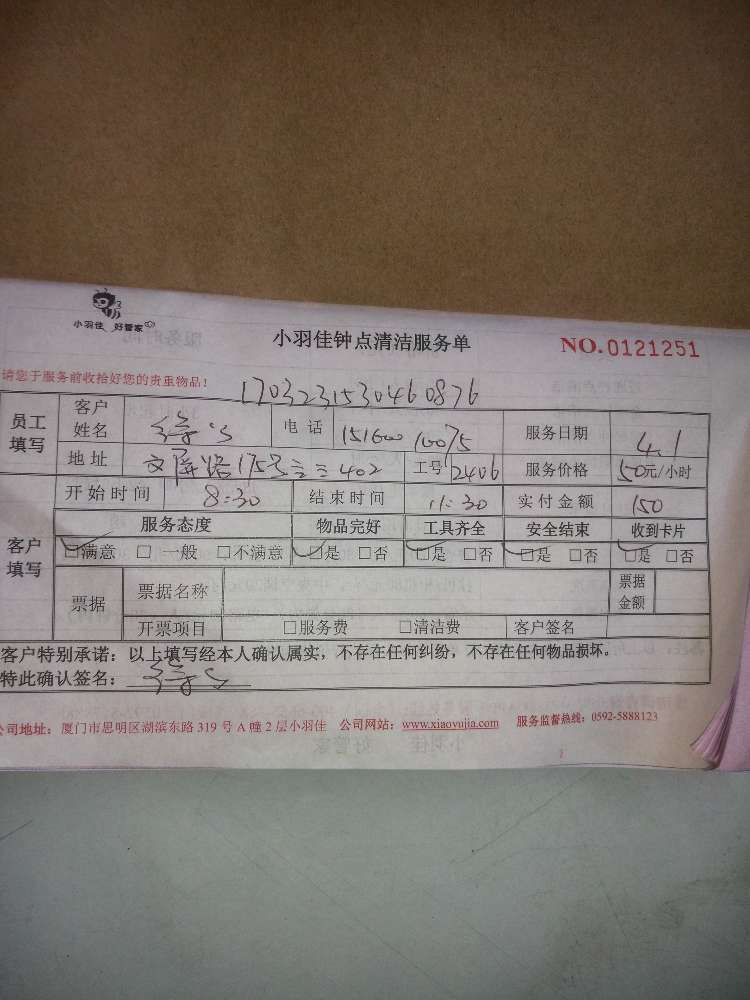 小羽佳 好管家
小羽佳钟点清洁服务单
NO.0121251
请您于服务前收拾好您的贵重物品!
1703231530460876
员工填写 客户姓名 电话 15160010075 服务日期 4.1
地址 文屏路175号 402 工号 2406 服务价格 50元/小时
客户填写 开始时间 8:30 结束时间 11:30 实付金额 150
服务态度 物品完好 工具齐全 安全结束 收到卡片
☑满意 □一般 □不满意 ☑是 □否 ☑是 □否 ☑是 □否 ☑是 □否
票据 票据名称 票据金额
开票项目 □服务费 □清洁费 客户签名
客户特别承诺:以上填写经本人确认属实,不存在任何纠纷,不存在任何物品损坏。
特此确认签名:
公司地址:厦门市思明区湖滨东路 319 号 A 幢 2 层小羽佳 公司网站:www.xiaoyujia.com 服务监督热线:0592-5888123